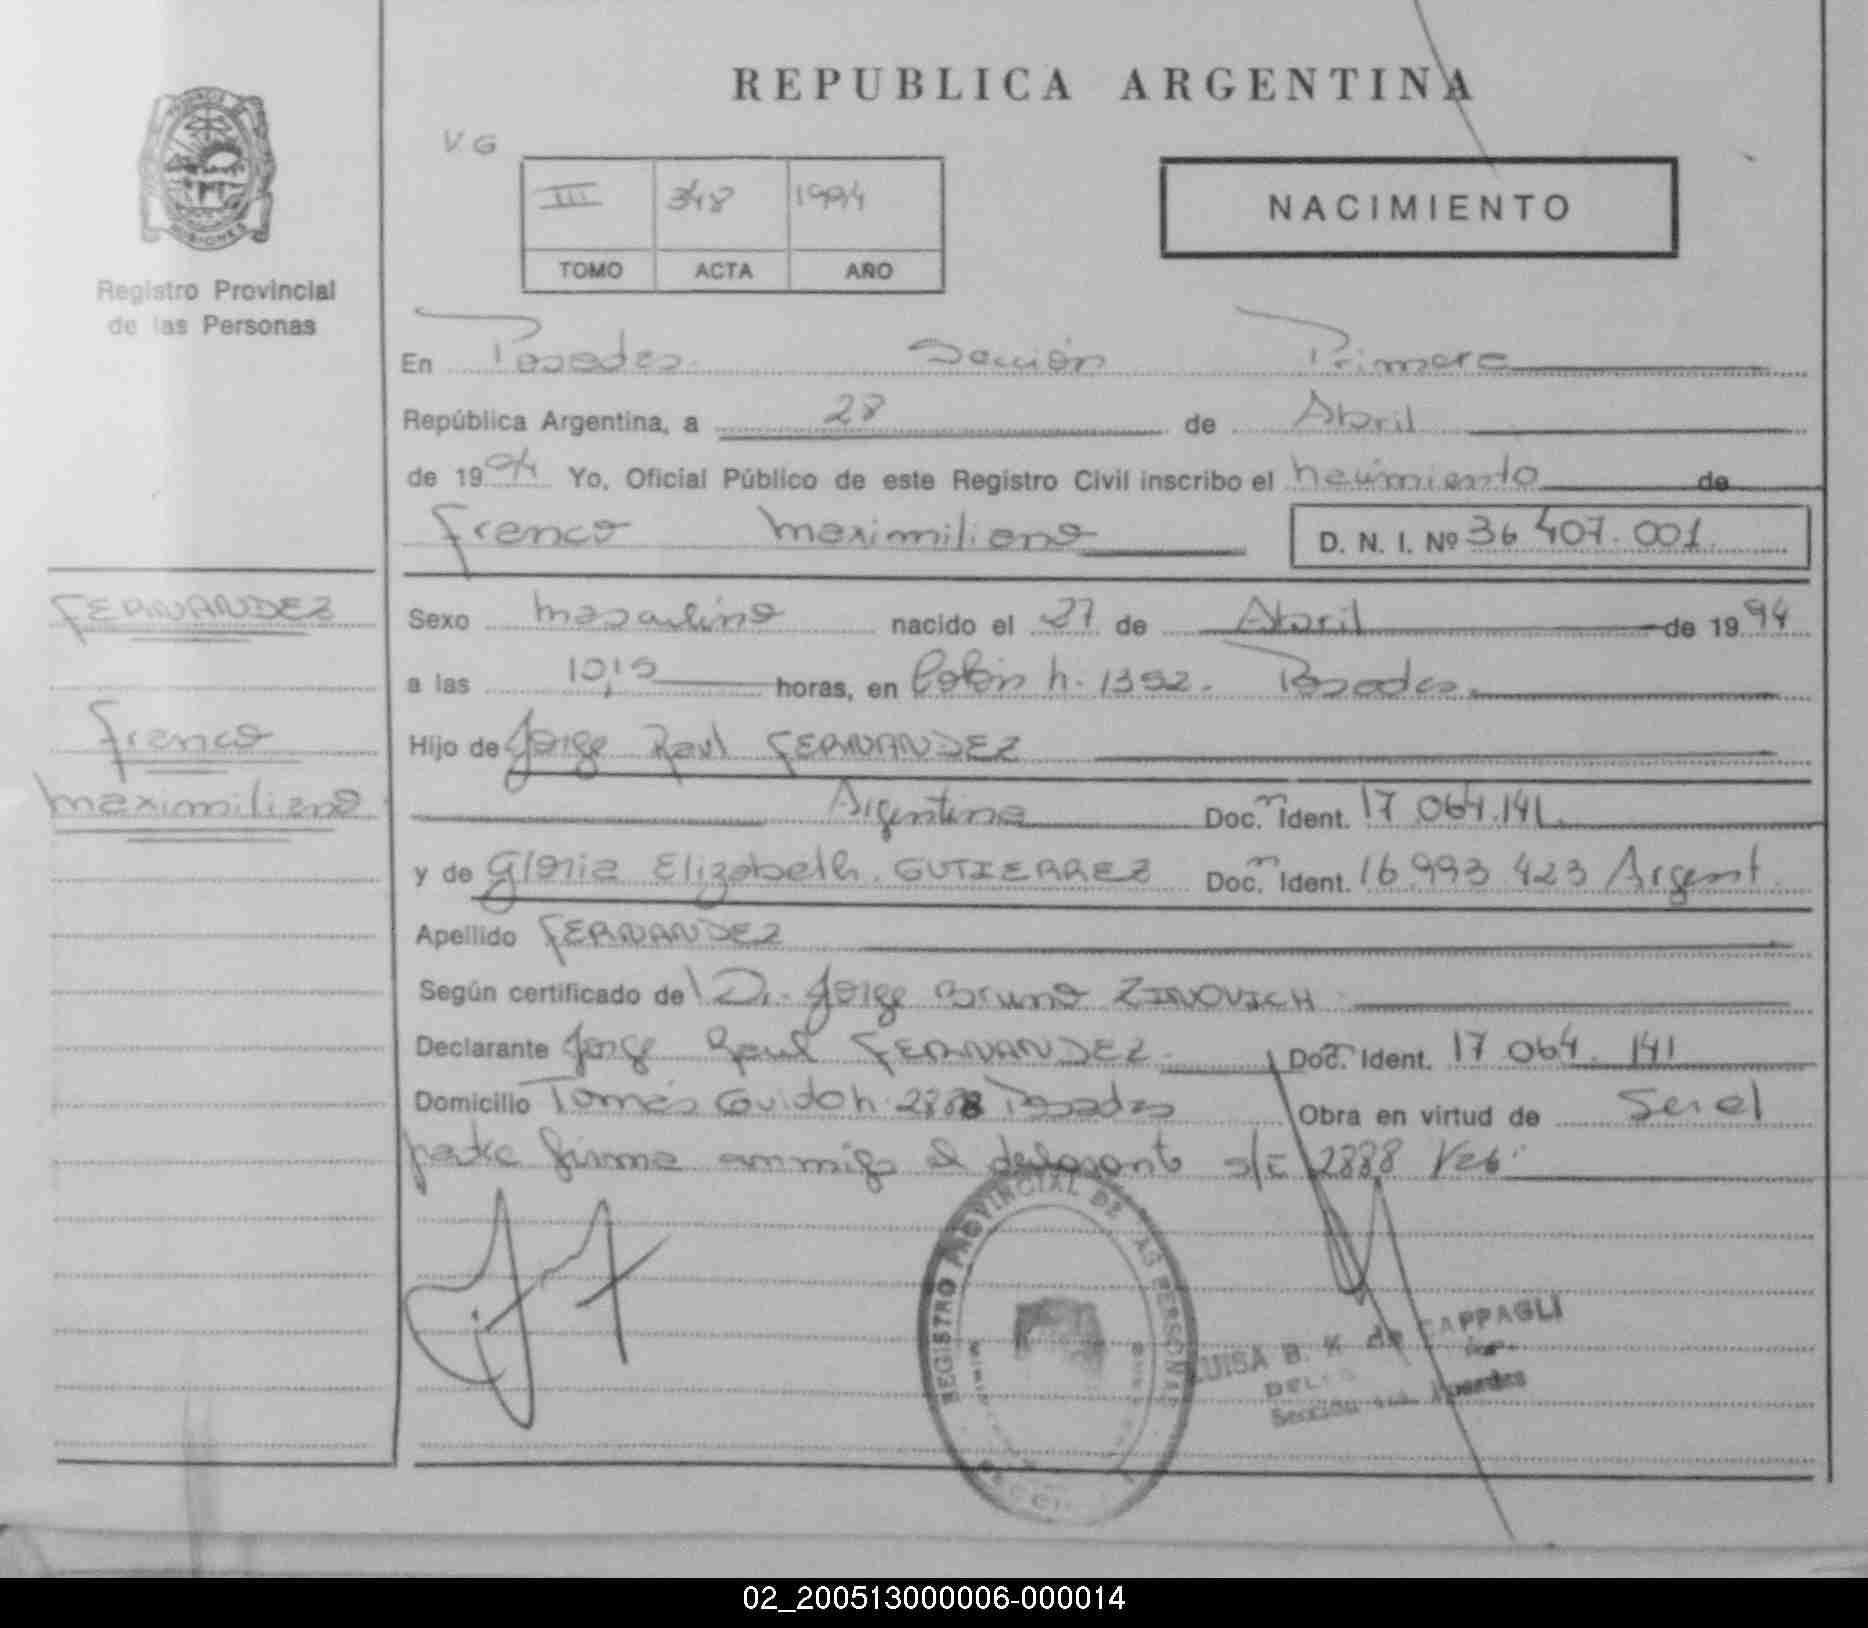 REPUBLICA ARGENTINA
V.G
III 348 1994
TOMO ACTA AÑO
NACIMIENTO
MISIONES
Registro Provincial
de las Personas
En Posadas Sección Primera
República Argentina, a 28 de Abril
de 1994 Yo, Oficial Público de este Registro Civil inscribo el nacimiento de
Franco Maximiliano D. N. I. Nº 36 407.001
FERNANDEZ
Franco
Maximiliano
Sexo masculino nacido el 27 de Abril de 1994
a las 10,15 horas, en Colón n. 1352. Posadas
Hijo de Jorge Raul FERNANDEZ
Argentino Doc. Ident. 17 064.141
y de Gloria Elizabeth GUTIERREZ Doc. Ident. 16 993 423 Argent.
Apellido FERNANDEZ
Según certificado del Dr. Jorge Bruno ZINOVICH
Declarante Jorge Raul FERNANDEZ Doc. Ident. 17 064. 141
Domicilio Tomás Guido n. Posadas Obra en virtud de Ser el
padre firma conmigo el s/E 2888 Vale
REGISTRO PROVINCIAL DE LAS PERSONAS
LUISA B. K. de CAPPAGLI
Sección Posadas
02_200513000006-000014